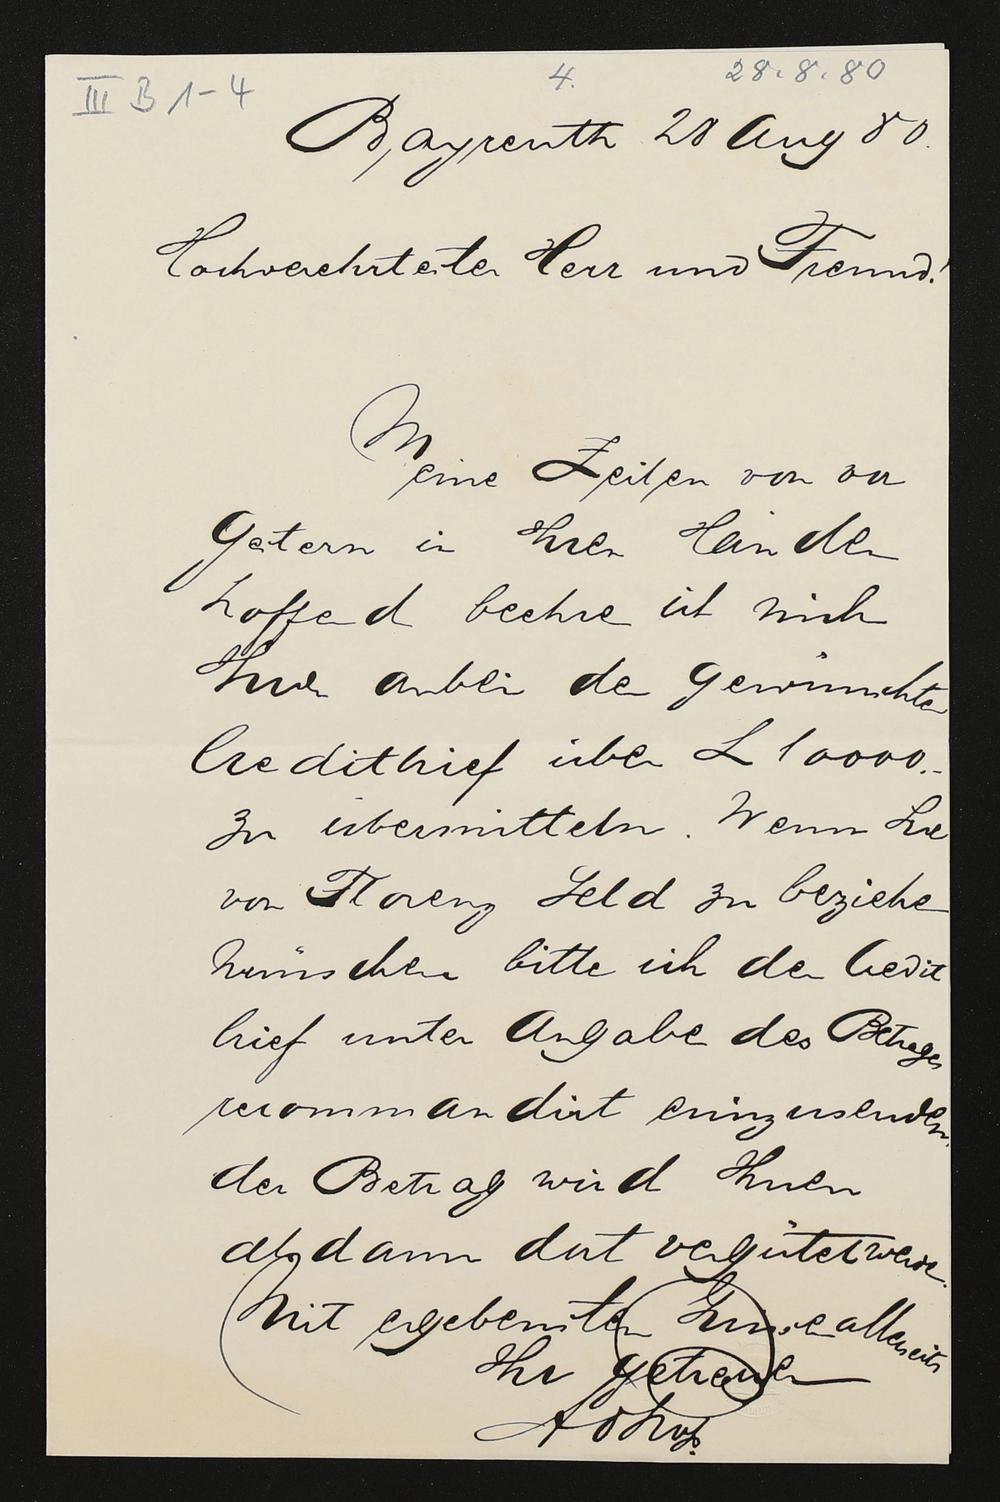 III B 1-4
4.
28.8.80
Bayreuth 28 Aug 80.
Hochverehrtester Herr und Freund!
Meine Zeilen von vor
Gestern in Ihren Händen
hoffend beehre ich mich
Ihnen anbei den gewünschten
Creditbrief über L 10000.-
zu übermitteln. Wenn Sie
von Florenz Geld zu beziehen
wünschen bitte ich den Credit
brief unter Angabe des Betrages
recommandirt einzusenden.
der Betrag wird Ihnen
alsdann dort vergütet werden.
Mit ergebensten Grüssen allerseits
Ihr getreuer